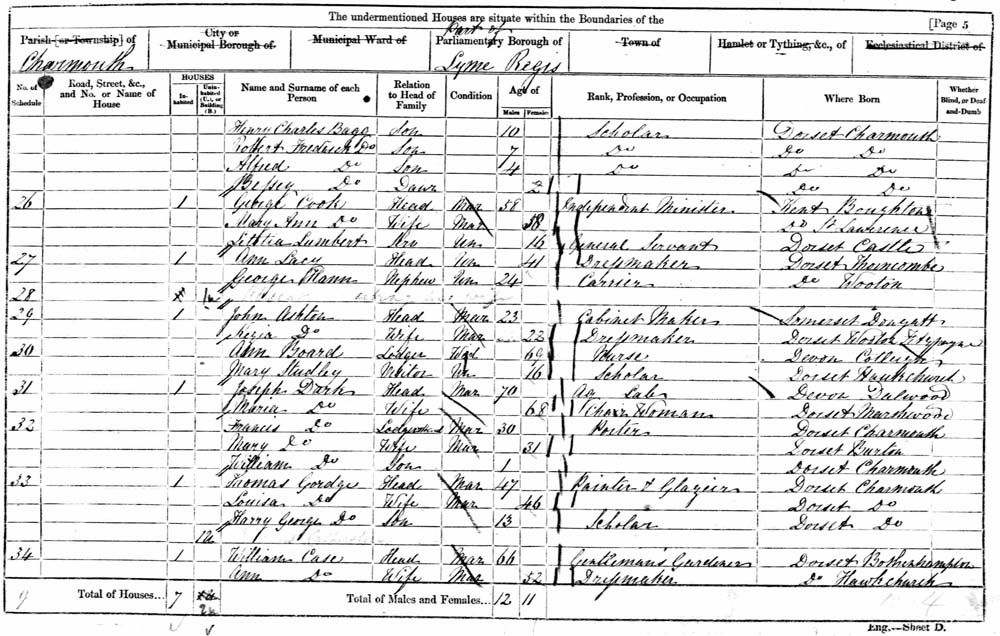 The undermentioned Houses are situate within the Boundaries of the [Page 5
Parish [or Township] of City or Municipal Borough of Municipal Ward of Part of Parliamentary Borough of Town of Hamlet or Tything, &c., of Ecclesiastical District of
Charmouth Lyme Regis
No. of Schedule Road, Street, &c., and No. or Name of House HOUSES Inhabited Uninhabited (U.), or Building (B.) Name and Surname of each Person Relation to Head of Family Condition Age of Males Females Rank, Profession, or Occupation Where Born Whether Blind, or Deaf-and-Dumb
Henry Charles Bagg Son 10 Scholar Dorset Charmouth
Robert Frederick Do Son 7 Do Do Do
Alfred Do Son 4 Do Do Do
Bessey Do Daur 2 Do Do
26 1 George Cook Head Mar 58 Independent Minister Kent Boughton
Mary Ann Do Wife Mar 58 Do St Lawrence
Letetia Lumbert Un 16 General Servant Dorset Castle
27 1 Ann Lacy Head Un 41 Dressmaker Dorset Thorncombe
George Mann Nephew Un 24 Carrier Do Wooton
28
29 1 John Ashton Head Mar 23 Cabinet Maker Somerset Donyatt
Do Wife Mar 22 Dressmaker Dorset Wooton Fitzpayne
30 Ann Board Lodger Wid 69 Nurse Devon
Mary Studley Visitor Un 16 Scholar Dorset Hawkchurch
31 1 Joseph Dark Head Mar 70 Ag Lab Devon Dalwood
Maria Do Wife 68 Charr Woman Dorset Marshwood
32 Francis Do Mar 30 Porter Dorset Charmouth
Mary Do Wife Mar 31 Dorset Burton
William Do Son 1 Dorset Charmouth
33 1 Thomas Gordge Head Mar 47 Painter & Glazeir Dorset Charmouth
Louisa Do Wife Mar 46 Dorset Do
Harry George Do Son 13 Scholar Dorset Do
34 1 William Case Head Mar 66 Gentleman's Gardener Dorset Bothenhampton
Ann Do Wife Mar 52 Dressmaker Do Hawkchurch
9 Total of Houses... 7 Total of Males and Females... 12 11
Eng.—Sheet D.